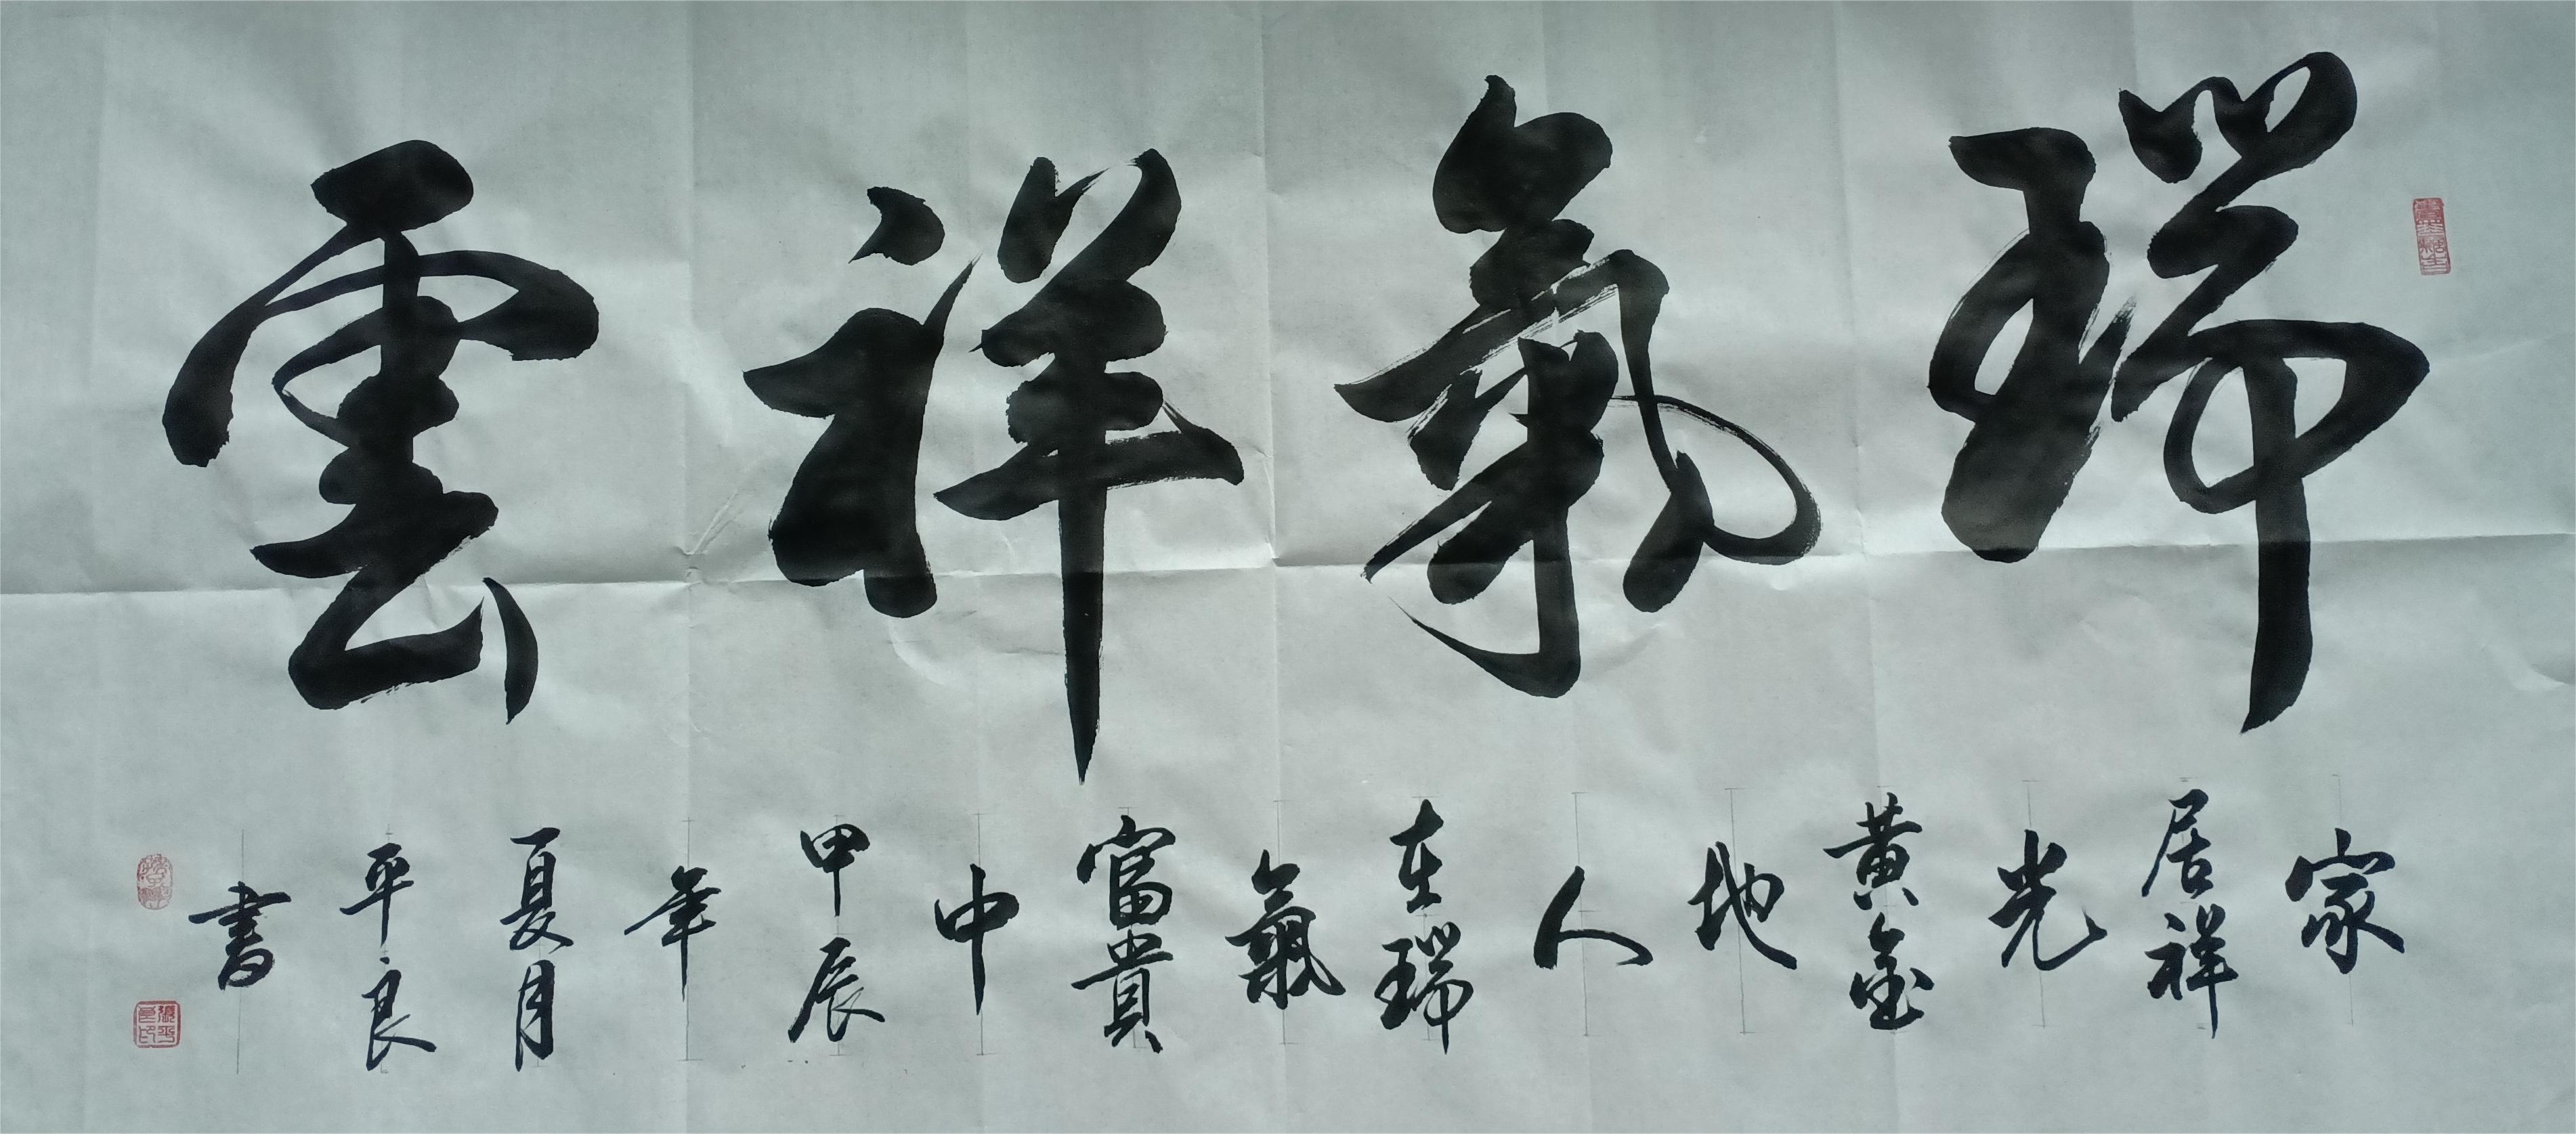 瑞氣祥雲
家居祥光黃金地人在瑞氣富貴中甲辰年夏月平良書